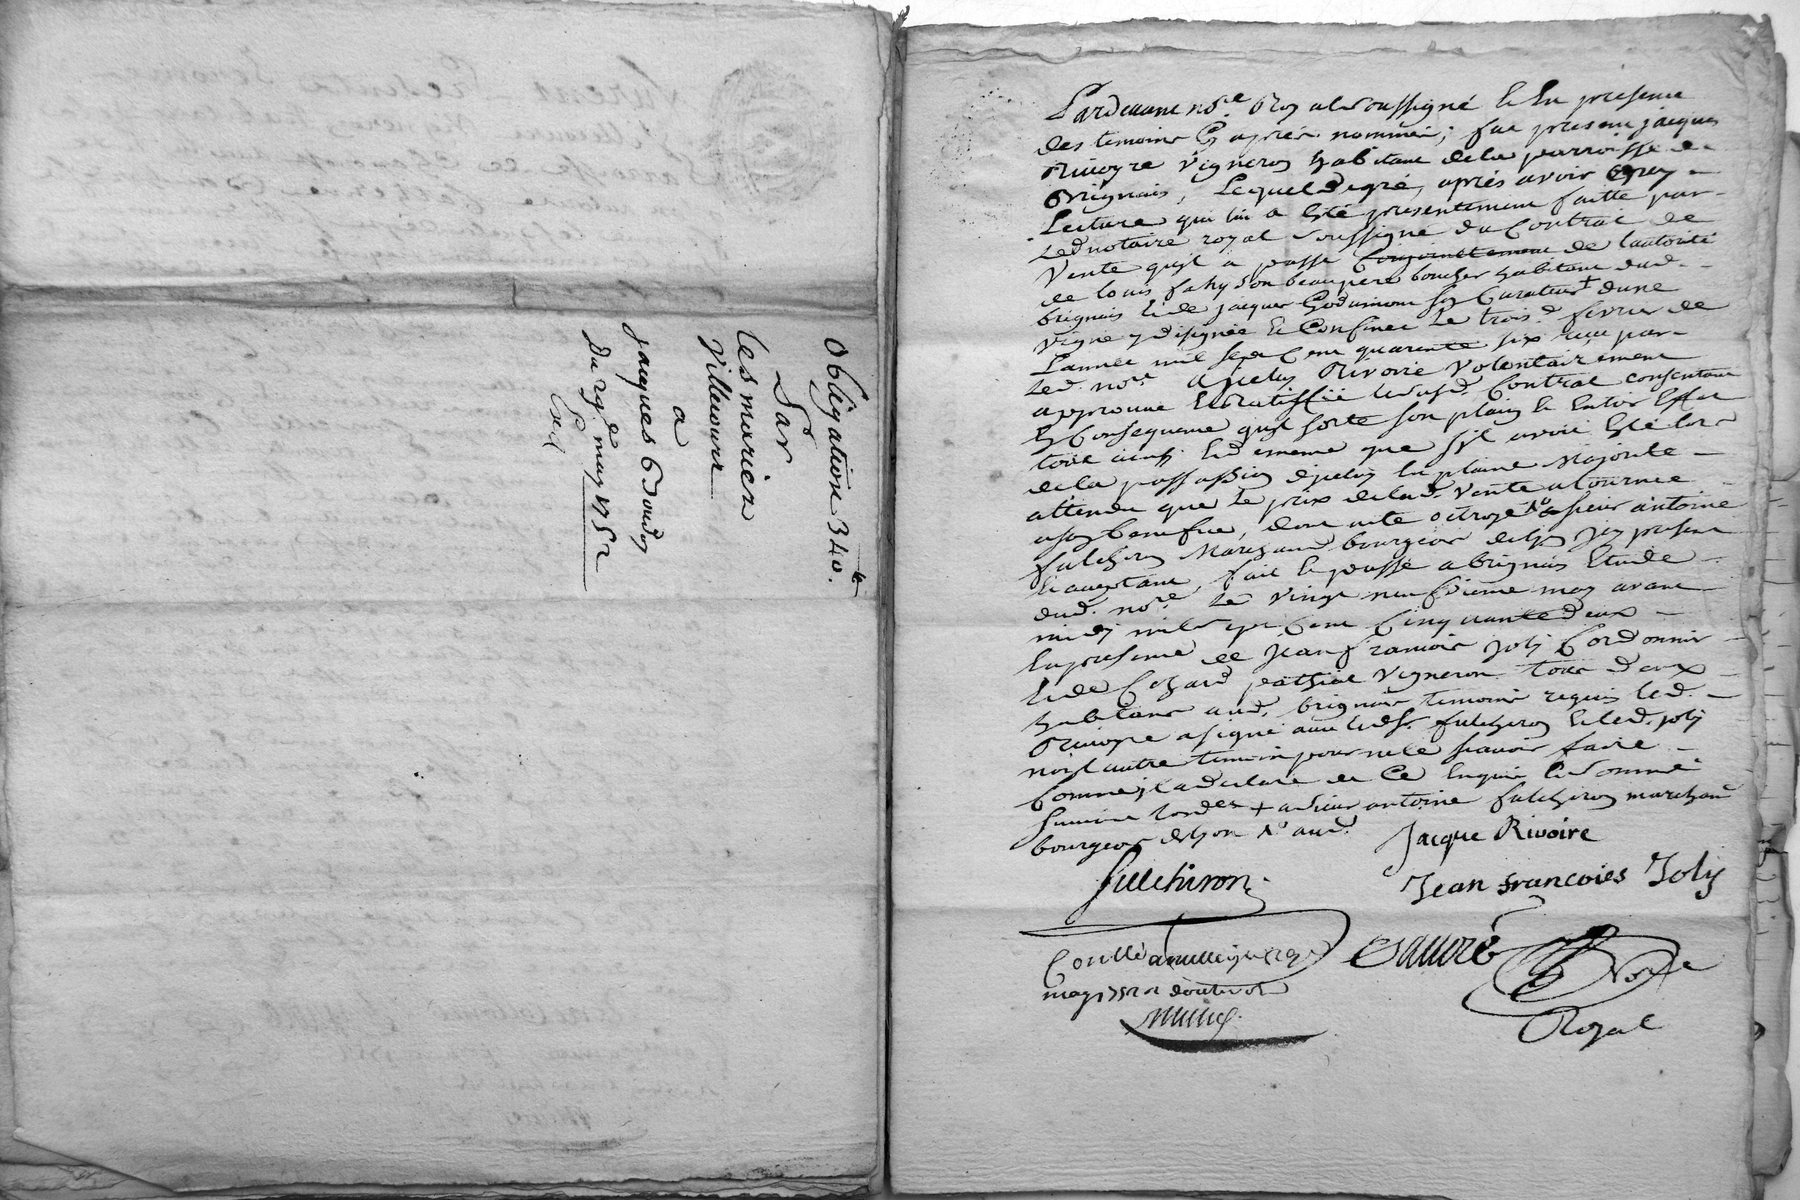 Obligation 340.lt
Par
les mariez
Villecourt
a
jacques Goudon
Du 29e may 1752
Pardevant no.re Roy al soussigné & En presence
des temoins Cy après nommés; fut present jacques
Rivoyre Vigneron habitant de la parroisse de
Brignais, Lequel de gré, après avoir Eu
Lecture qui lui a Eté presentement faitte par
Led notaire royal soussigné du Contrat de
Vente qu'il a passé Conjointement de l'autorité
de louis fahy son beaupere boucher habitant dud.
brignais & de jacques Son Curateur d'une
Vigne y designée & Confinée Le trois fevrier de
L'année mil sept Cent quarente six reçu par
Led. no.re Icelui Rivoire Volontairement
approuve & Ratiffie led. Contrat consentant
En Consequence qu'il sorte son plain & Entier Effet
tout ainsi & de meme que s'il avoit Eté lors
de la passation d'icelui En plaine Majorité
attendu que le prix de lad. Vente a tourné
a son benefice, dont acte octroyé + sieur antoine
fulchiron Marchand bourgeois de Lyon Icy present
& acceptant, fait & passé a brignais Etude
dud. no.re Le Vingt neufvieme may avant
midy mil sept Cent Cinquante deux
En presence de jean francois joly Cordonnier
& de Vigneron tous deux
habitans aud. brignais temoins requis led.
Rivoyre a signé avec led. sr. fulchiron & led. joly
non l'autre temoin pour ne le scavoir faire
Comme il a declaré de Ce Enquis & Sommé
suivant l'ord.ce + a sieur antoine fulchiron marchand
bourgeois de Lyon
Jacque Rivoire
fulchiron
Jean francoies Joly
Controllé a
may 1752
Notre
Royal